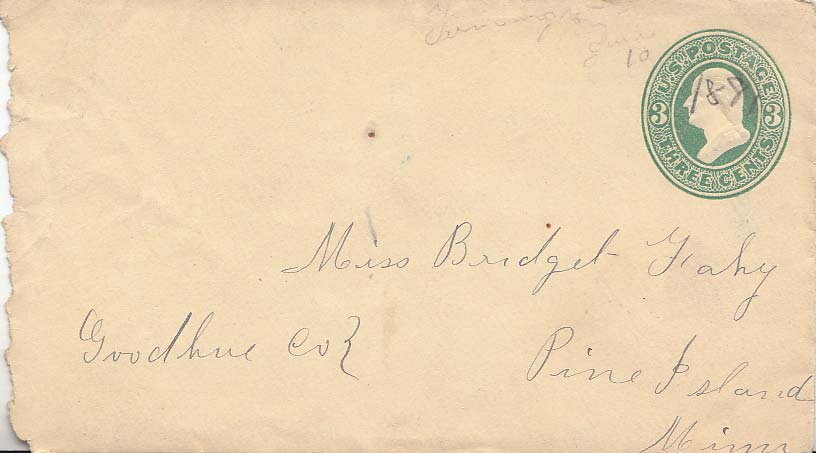 June
10
U.S. POSTAGE
3 1871 3
THREE CENTS
Miss Bridget Fahy
Goodhue Co
Pine Island
Minn